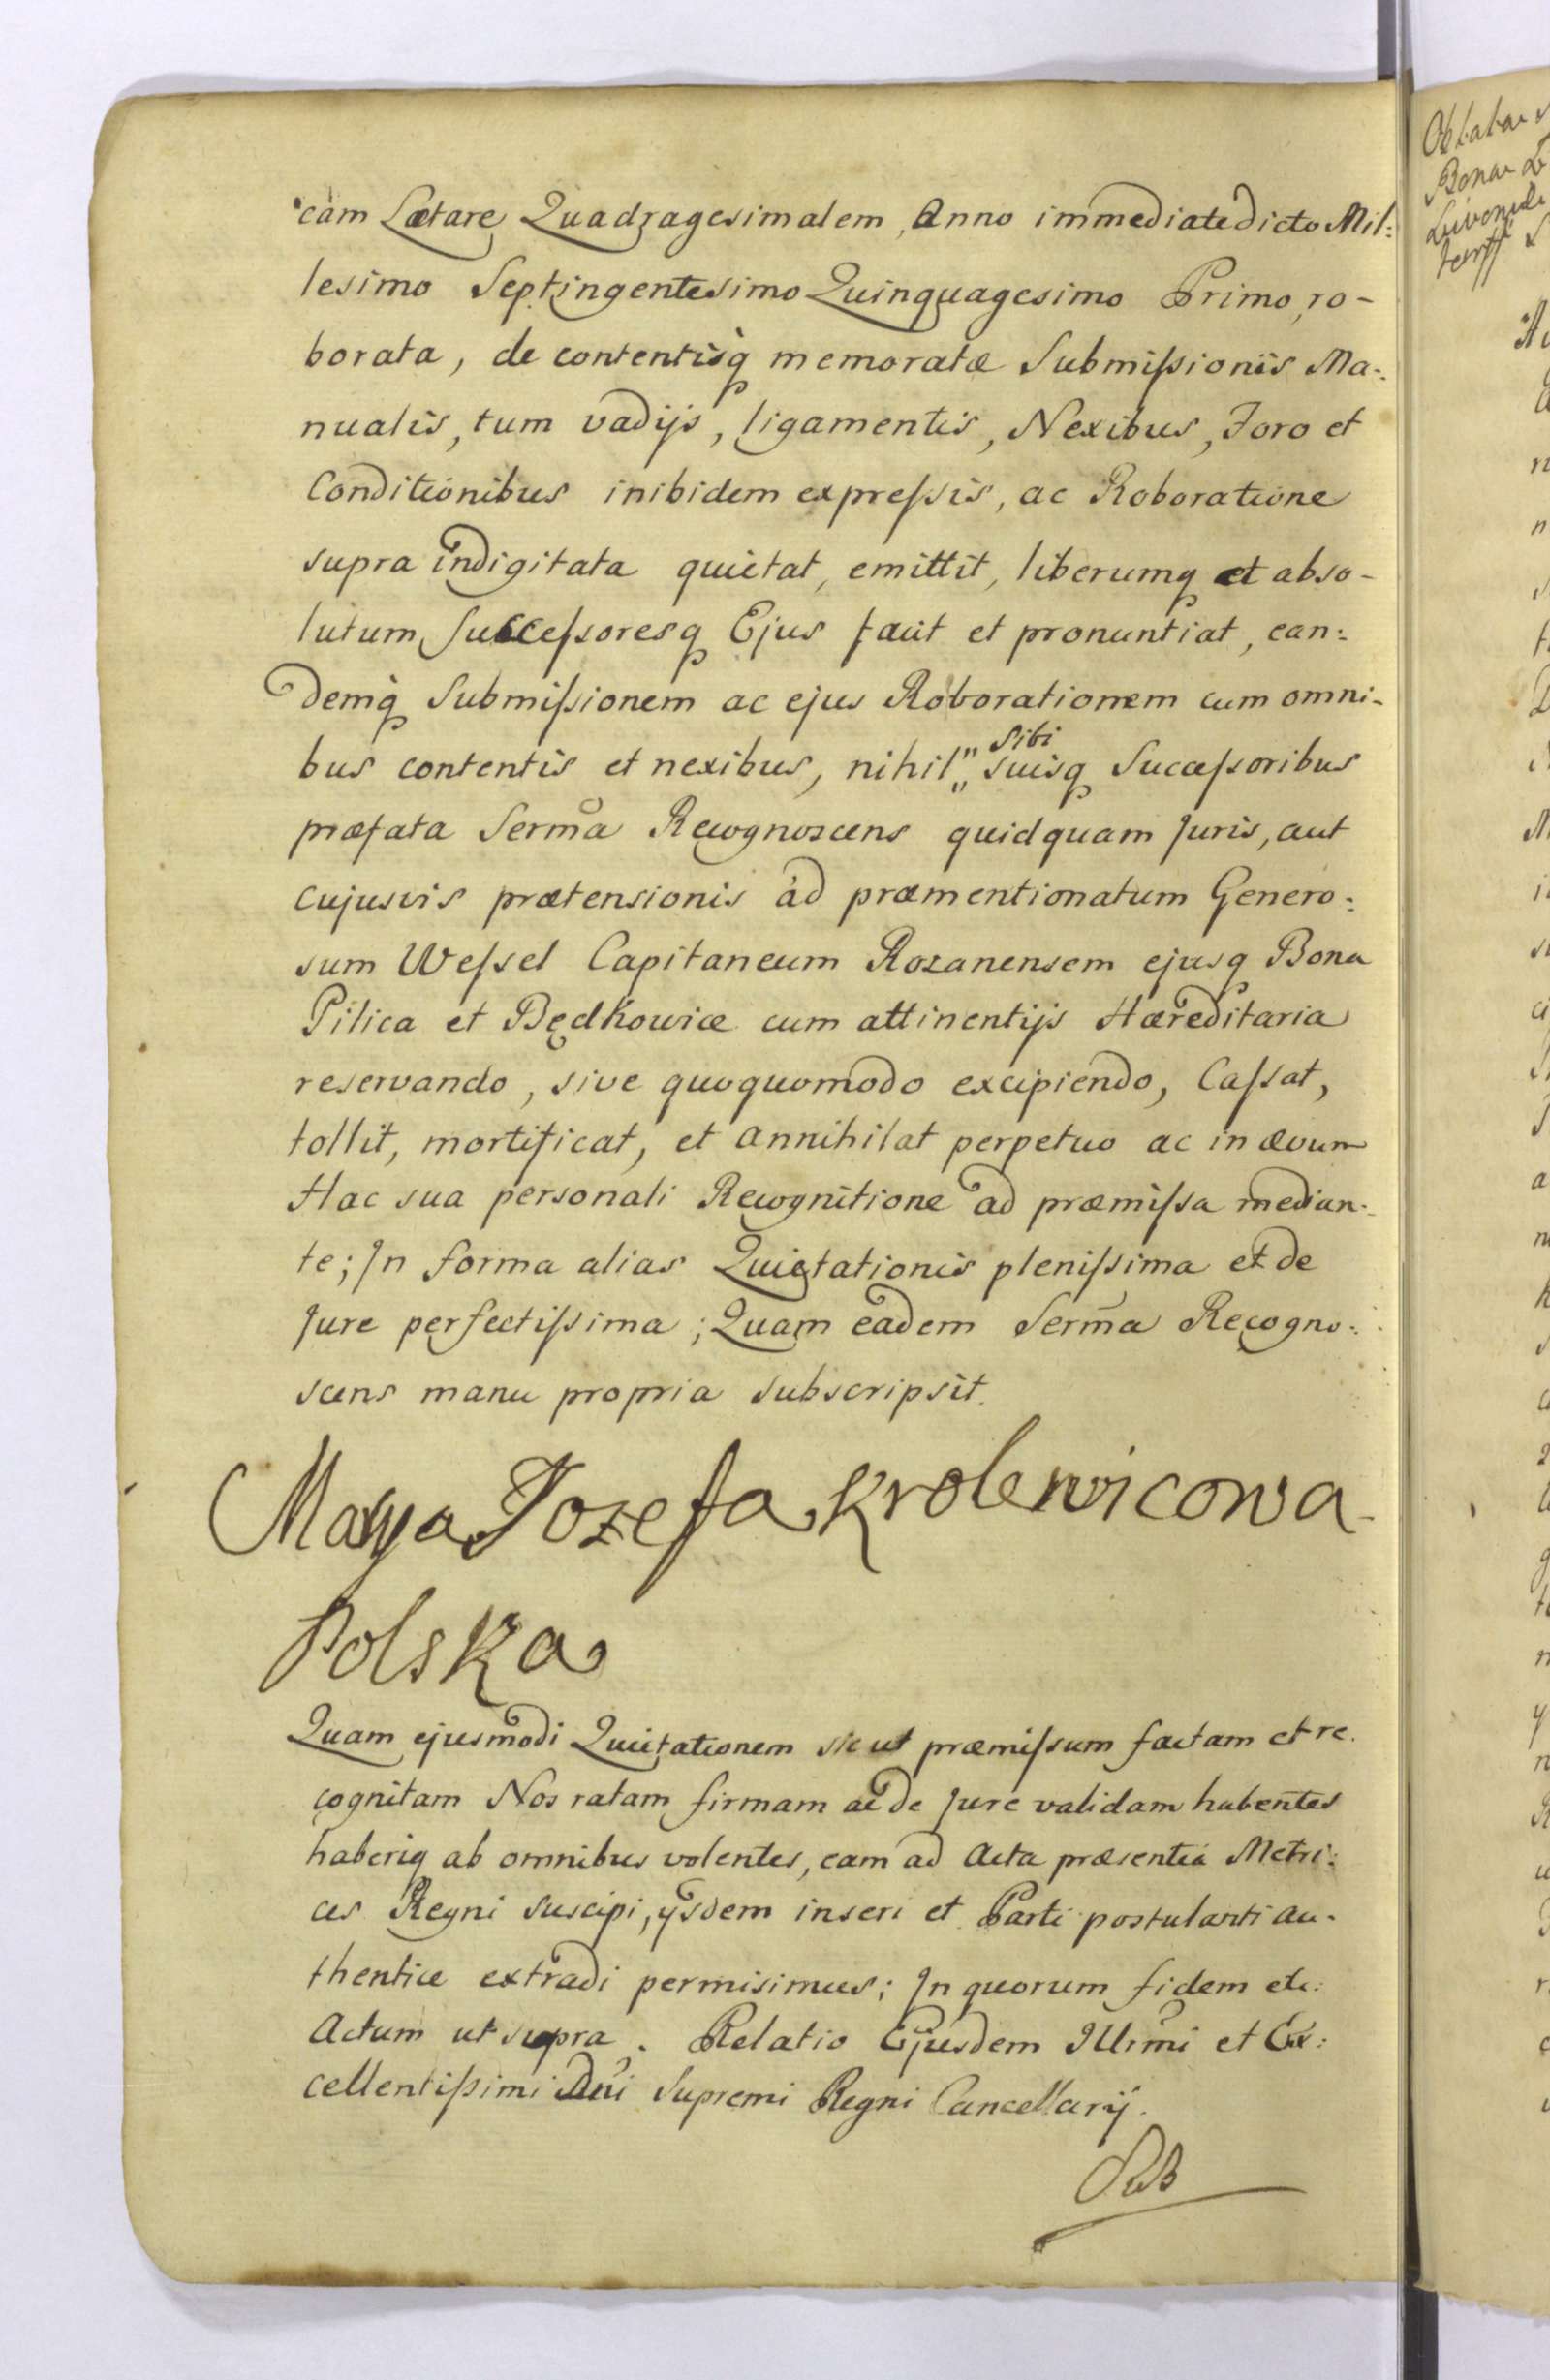 cam Lætare Quadragesimalem, Anno immediate dicto Mil:
lesimo Septingentesimo Quinquagesimo Primo, ro-
borata, de contentisq memoratæ Submiſsionis Ma:
nualis, tum vadijs, ligamentis, Nexibus, Foro et
Conditionibus inibidem expreſsis, ac Roboratione
supra indigitata quietat, emittit, liberumq et abso-
lutum Succeſsoresq Ejus facit et pronuntiat, ean:
demq Submiſsionem ac ejus Roborationem cum omni-
bus contentis et nexibus, nihil „ sibi suisq Succeſsoribus
præfata Serma Recognoscens quidquam Juris, aut
cujusvis prætensionis ad præmentionatum Genero:
sum Weſsel Capitaneum Rozanensem ejusq Bona
Pilica et Będkowice cum attinentijs Hæreditaria
reservando, sive quoquomodo excipiendo, Caſsat,
tollit, mortificat, et annihilat perpetuo ac in ævum
Hac sua personali Recognitione ad præmiſsa median-
te; In forma alias Quietationis pleniſsima et de
Jure perfectiſsima; Quam eadem Serma Recogno:
scens manu propria subscripsit.
Marya Jozefa Krolewicowa
Polska
Quam ejusmodi Quietationem sic ut præmiſsum factam et re.
cognitam Nos ratam firmam ac de Jure validam habentes
haberiq ab omnibus volentes, eam ad Acta præsentia Metri:
ces Regni suscipi, ijsdem inseri et Parti postulanti au-
thentice extradi permisimus; In quorum fidem etc:
Actum ut supra. Relatio Ejusdem Illrmi et Ex:
cellentiſsimi Dni Supremi Regni Cancellarij.